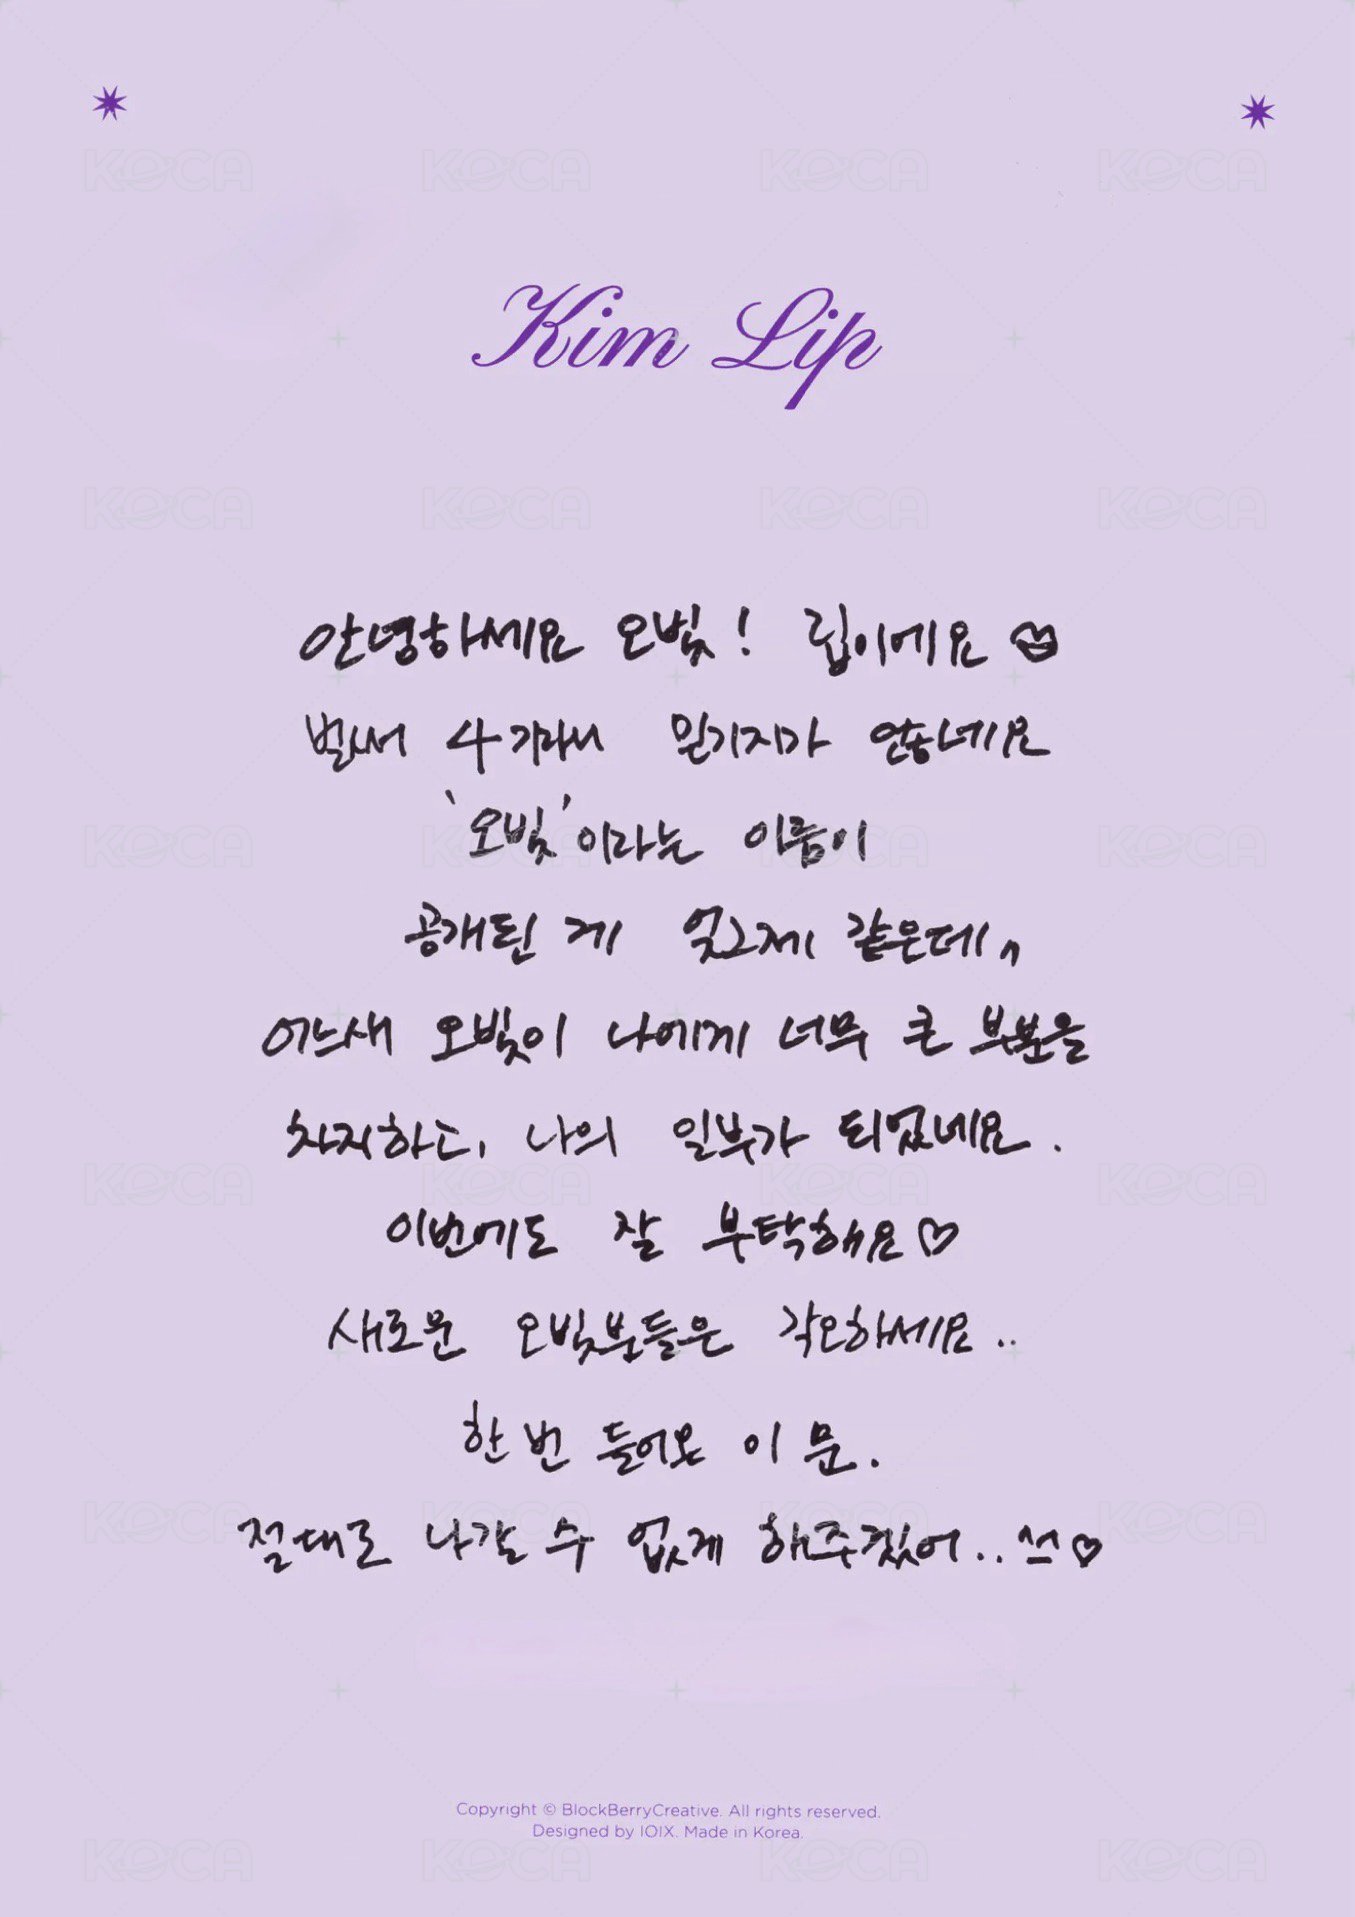 Kim Lip
안녕하세요 오빛! 립이에요♡
벌써 4기라니 믿기지가 않네요
'오빛'이라는 이름이
공개된 게 엊그제 같은데,
어느새 오빛이 나에게 너무 큰 부분을
차지하고, 나의 일부가 되었네요.
이번에도 잘 부탁해요♡
새로운 오빛분들은 각오하세요..
한 번 들어온 이 문.
절대로 나갈 수 없게 해주겠어.. 쓰♡
Copyright © BlockBerryCreative. All rights reserved.
Designed by IOIX. Made in Korea.
KOCA